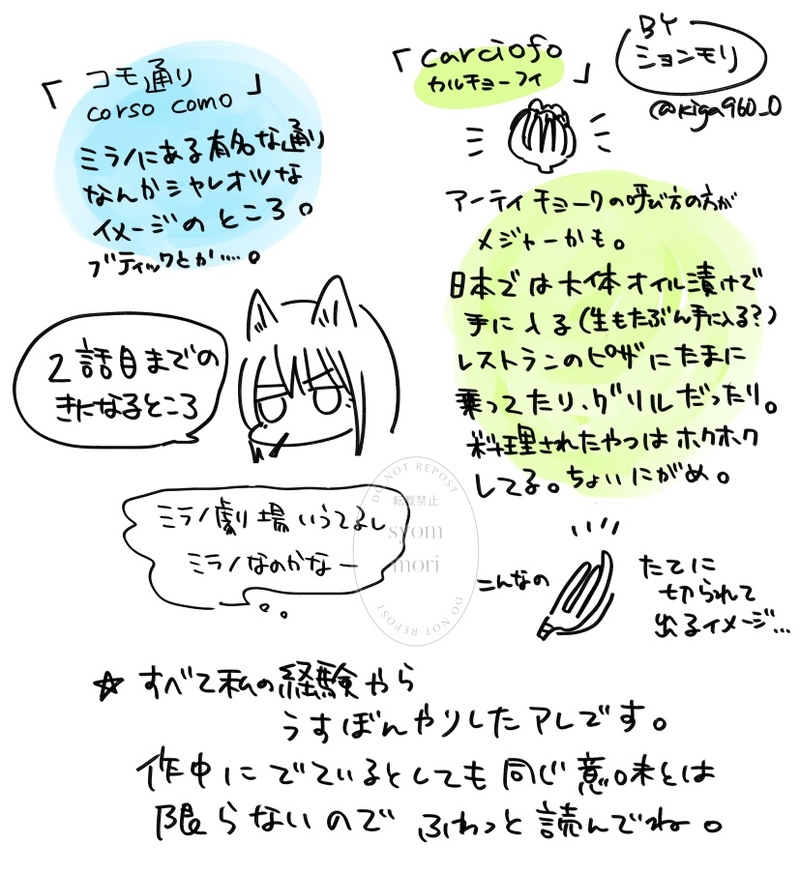 「コモ通り
corso como」
ミラノにある有名な通り
なんかシャレオツな
イメージのところ。
ブティックとか….。
「carciofo
カルチョーフィ」
BY
ションモリ
@kiga960_0
アーティチョークの呼び方の方が
メジャーかも。
日本では大体オイル漬けで
手に入る(生もたぶん手に入る?)
レストランのピザにたまに
乗ってたり、グリルだったり。
料理されたやつはホクホク
してる。ちょいにがめ。
こんなの
たてに
切られて
出るイメージ…
2話目までの
きになるところ
ミラノ劇場いうてるし
ミラノなのかなー
DO NOT REPOST
転載禁止
syom
mori
DO NOT REPOST
☆すべて私の経験やら
うすぼんやりしたアレです。
作中にでているとしても同じ意味とは
限らないのでふわっと読んでね。